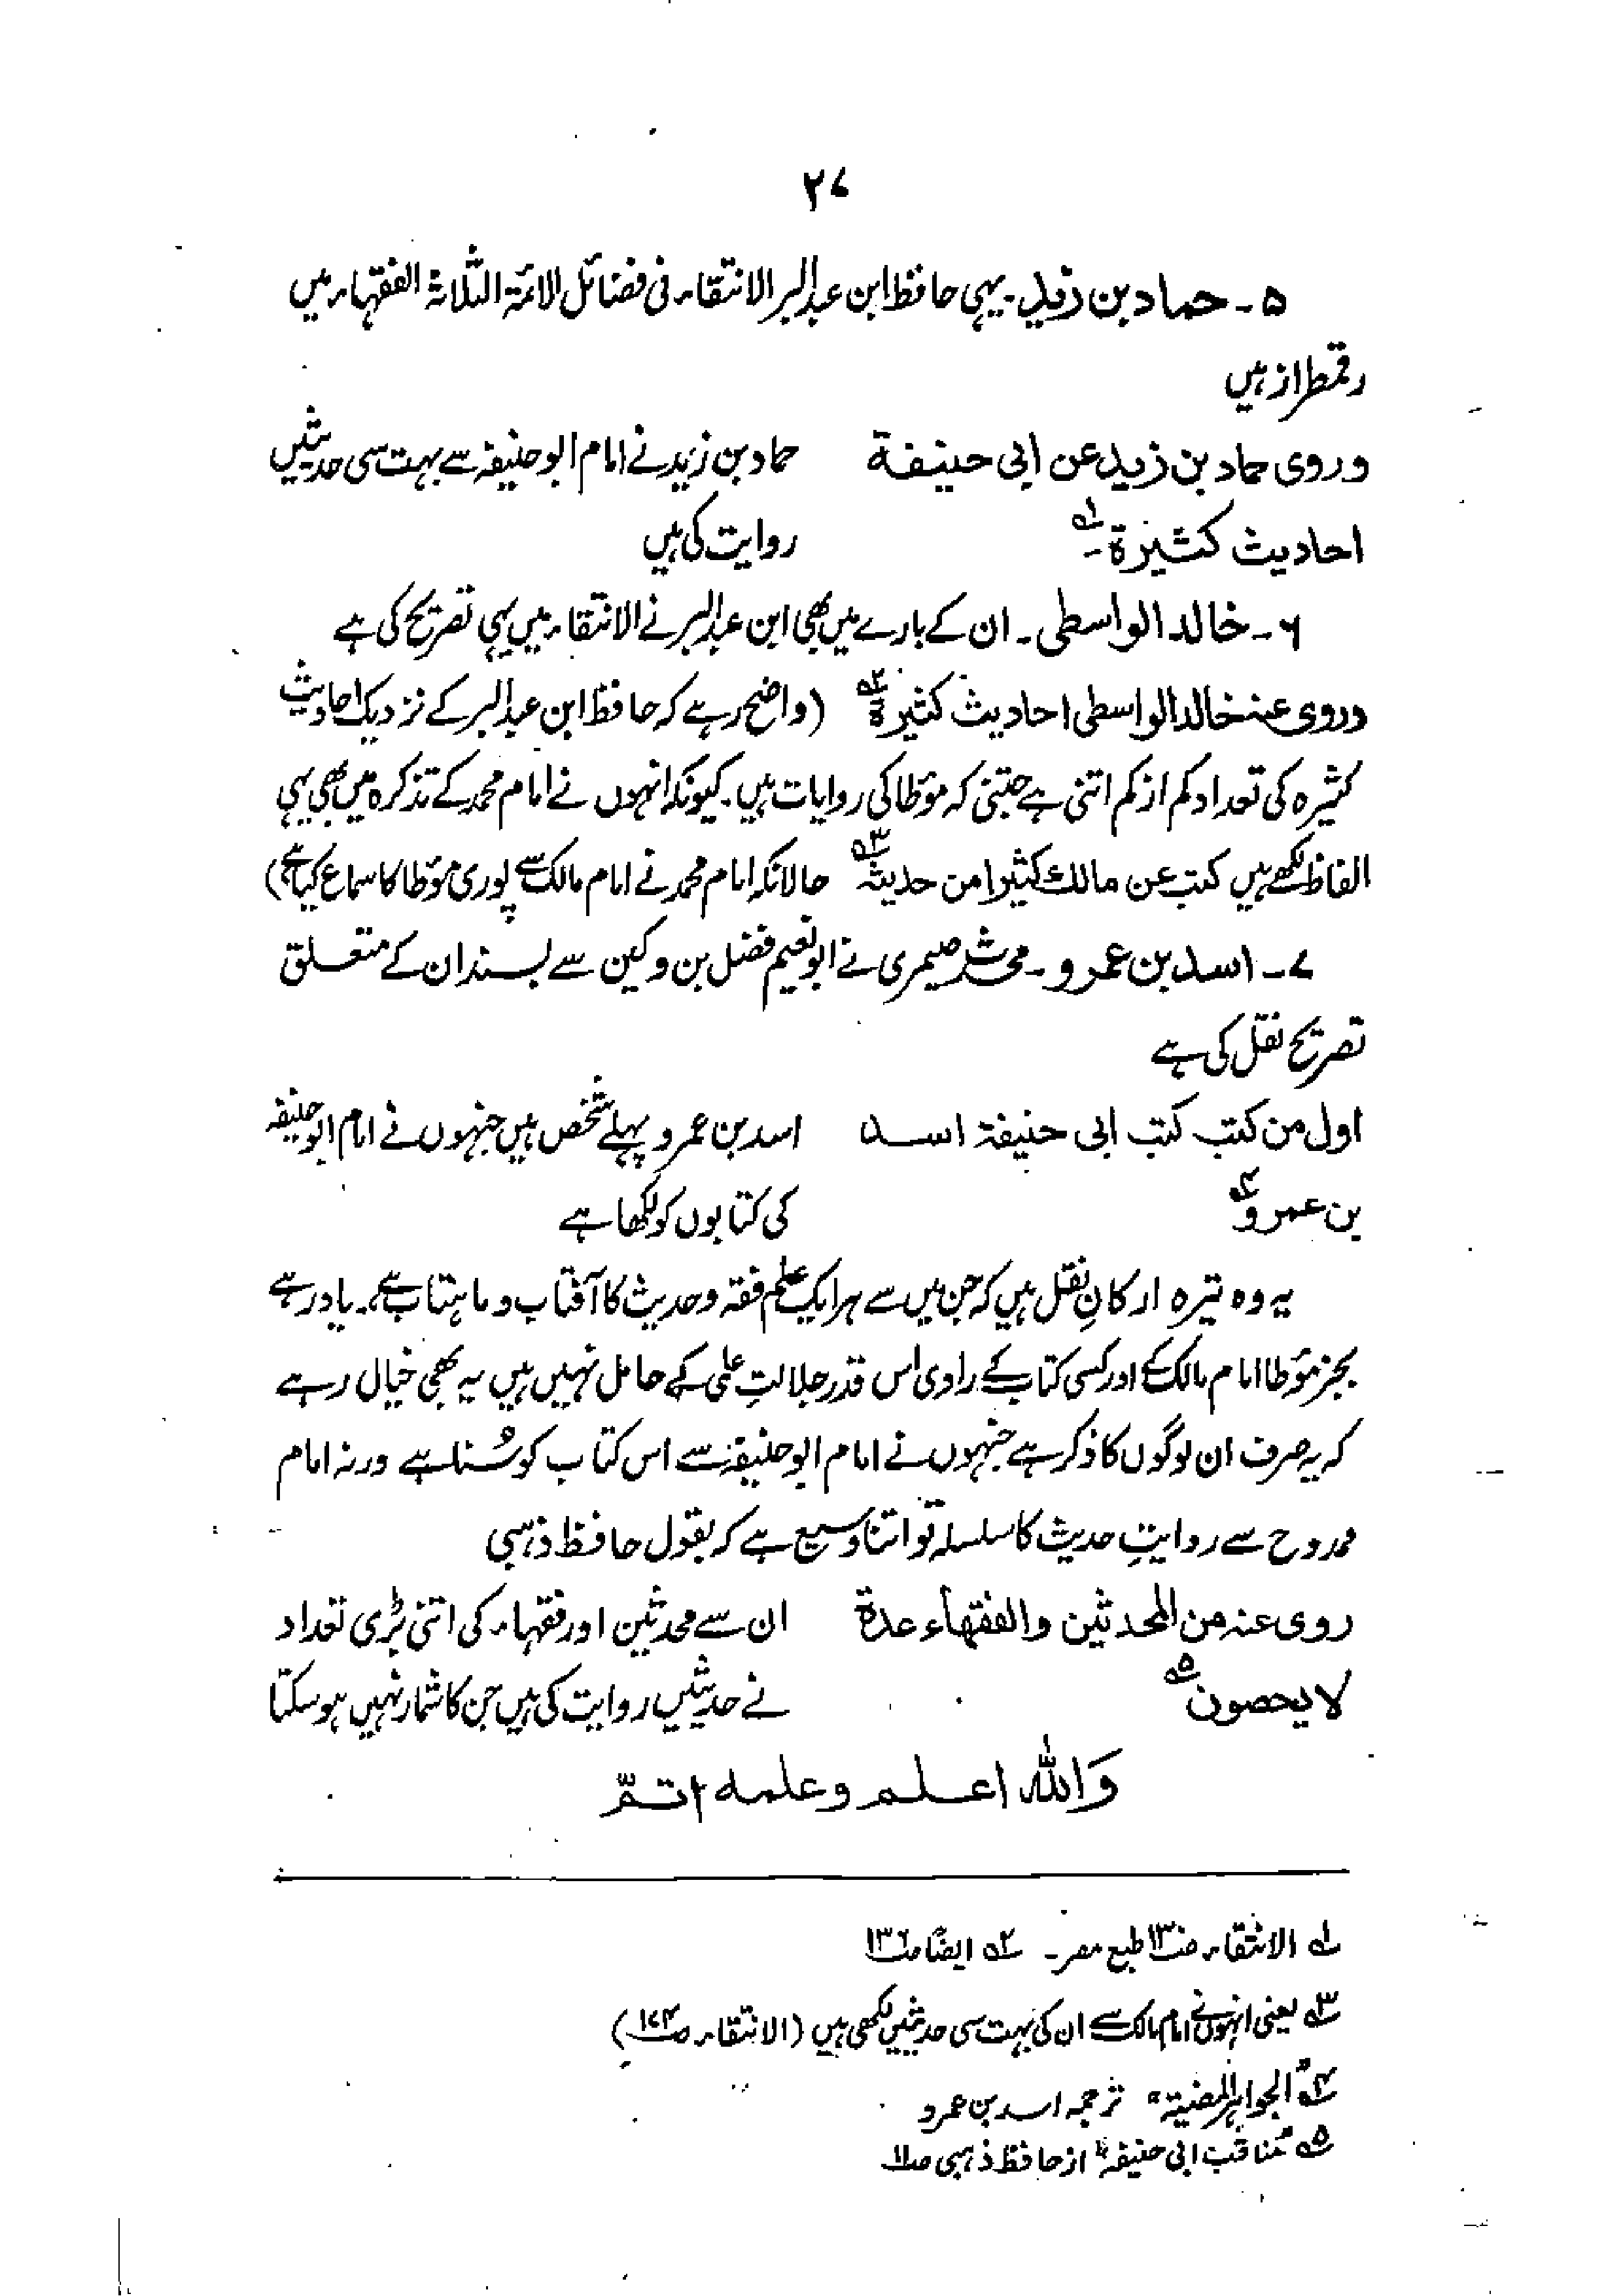 ۲۷
۵ - حماد بن زید - یہی حافظ ابن عبدالبر الانتقاء فی فضائل الائمۃ الثلاثۃ الفقہاء میں
رقمطراز ہیں
وروی حماد بن زید عن ابی حنیفة حماد بن زید نے امام ابوحنیفہ سے بہت سی حدیثیں
احادیث کثیرة - ۱ روایت کی ہیں
۶ - خالد الواسطی - ان کے بارے میں بھی ابن عبدالبر نے الانتقاء میں یہی تصریح کی ہے
وروی عنہ خالد الواسطی احادیث کثیرة ۲ (واضح رہے کہ حافظ ابن عبدالبر کے نزدیک احادیث
کثیرہ کی تعداد کم از کم اتنی ہے جتنی کہ موٴطا کی روایات ہیں۔ کیونکہ انہوں نے امام محمد کے تذکرہ میں بھی یہی
الفاظ لکھے ہیں کتب عن مالك کثیرا من حدیثہ ۳ حالانکہ امام محمد نے امام مالک سے پوری موٴطا کا سماع کیا ہے)
۷ - اسد بن عمرو - محدث صیمری نے ابونعیم فضل بن وکین سے بسند ان کے متعلق
تصریح نقل کی ہے
اول من کتب کتب ابی حنیفۃ اسد اسد بن عمرو پہلے شخص ہیں جنہوں نے امام ابوحنیفہ
بن عمرو ۴ کی کتابوں کو لکھا ہے
یہ وہ تیرہ ارکانِ نقل ہیں کہ جن میں سے ہر ایک علم فقہ و حدیث کا آفتاب و ماہتاب ہے۔ یاد رہے
بجز موٴطا امام مالک کے اور کسی کتاب کے راوی اس قدر جلالتِ علمی کے حامل نہیں ہیں یہ بھی خیال رہے
کہ یہ صرف ان لوگوں کا ذکر ہے جنہوں نے امام ابوحنیفہ سے اس کتاب کو سُنا ہے ورنہ امام
ممدوح سے روایتِ حدیث کا سلسلہ تو اتنا وسیع ہے کہ بقول حافظ ذہبی
روی عنہ من المحدثین والفقهاء عدة ان سے محدثین اور فقہاء کی اتنی بڑی تعداد
لا یحصون ۵ نے حدیثیں روایت کی ہیں جن کا شمار نہیں ہو سکتا
وَاللّٰه اعلم وعلمه اتمّ
۱ الانتقاء ص۱۳۰ طبع مصر - ۲ ایضًا ص۱۳۶
۳ یعنی انہوں نے امام مالک سے ان کی بہت سی حدیثیں لکھی ہیں (الانتقاء ص۱۷۴)
۴ "الجواہر المضیۃ" ترجمہ اسد بن عمرو
۵ "مناقب ابی حنیفہ" از حافظ ذہبی ص۱۱